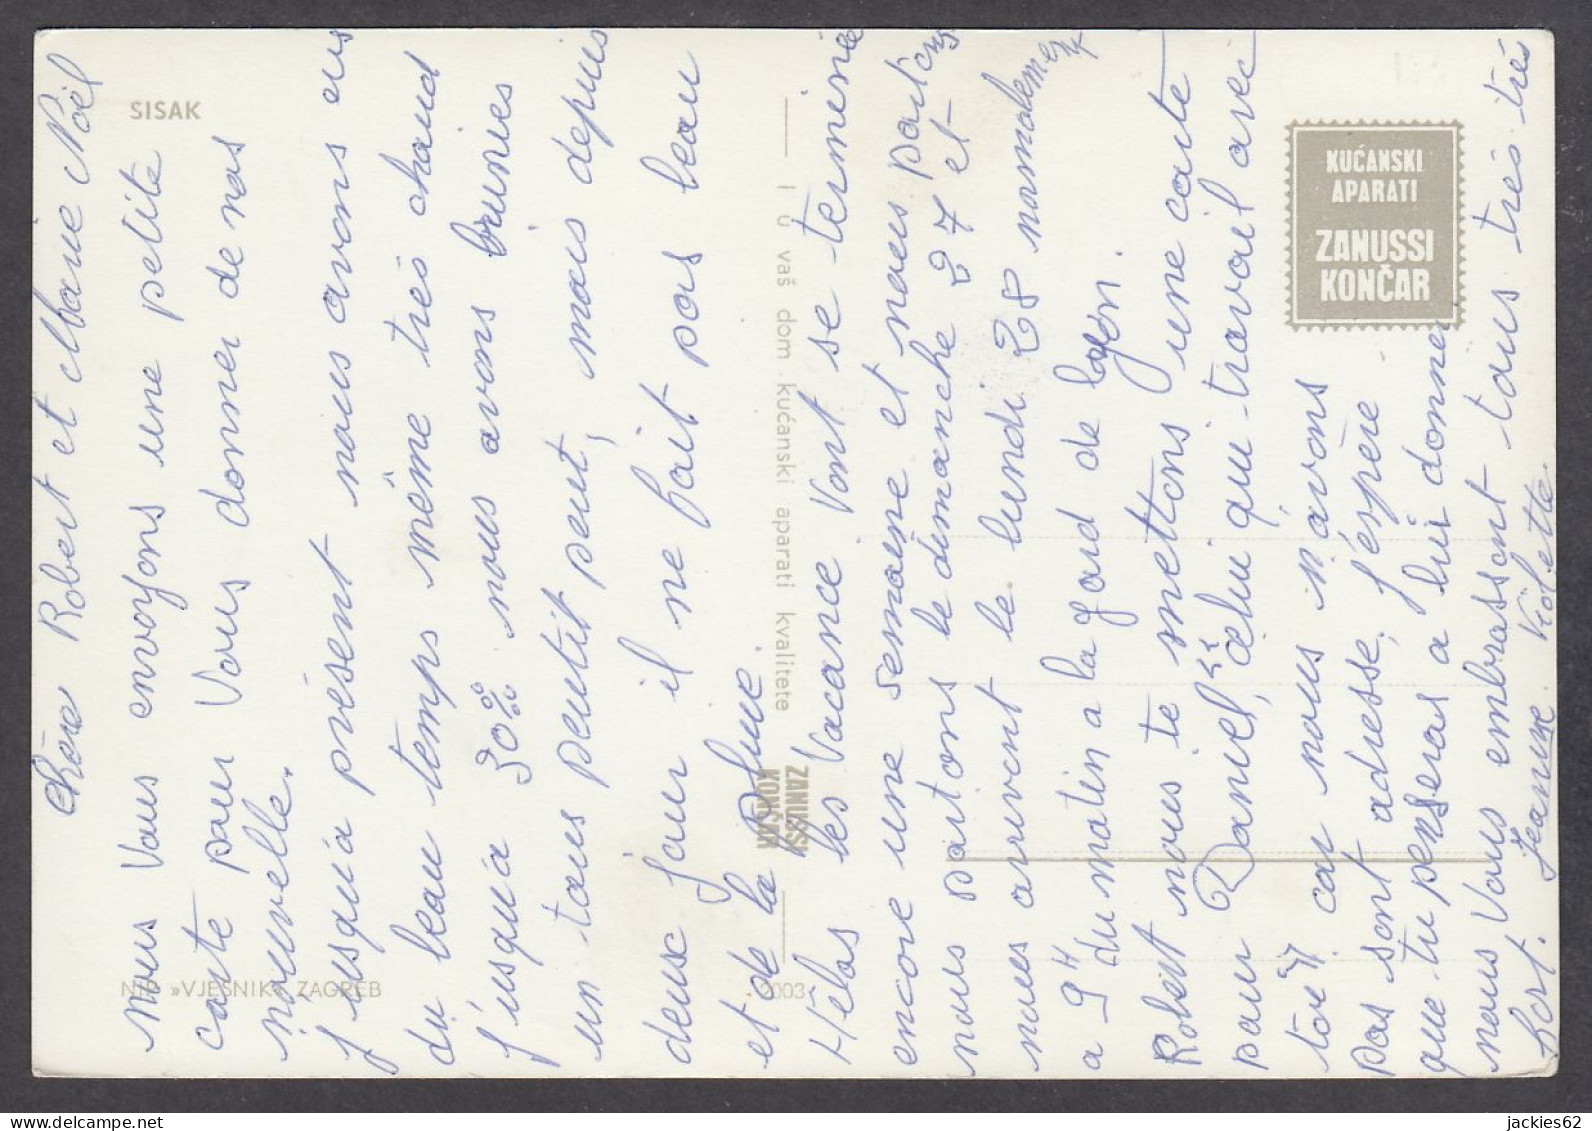 SISAK
KUĆANSKI
APARATI
ZANUSSI
KONČAR
I U vaš dom kućanski aparati kvalitete
ZANUSSI
KONČAR
NIP »VJESNIK« ZAGREB
2003
Chère Robert et Marie Noël
nous Vous envoyons une petite
carte pour Vous donner de nos
nouvelle.
jusqu'à présent nous avons eu
du beau temps même très chaud
j'usqu'a 30% nous avons brunies
un tous peutit peut, mais depuis
deux jour il ne fait pas beau
et de la pluie.
Hélas les Vacance Vont se terminée
encore une semaine et nous partons
nous partons le dimanche 27 et
nous arrivent le lundi 28 normalement
a 9H du matin a la gard de Lyon.
Robert nous te mettons une carte
pour Daniel, celui qui travail avec
toi car nous n'avons
pas sont adresse, j'espère
que tu penseras a lui donner
nous Vous embrassont tous très très
fort. Jeannne. Violette.
jackies62